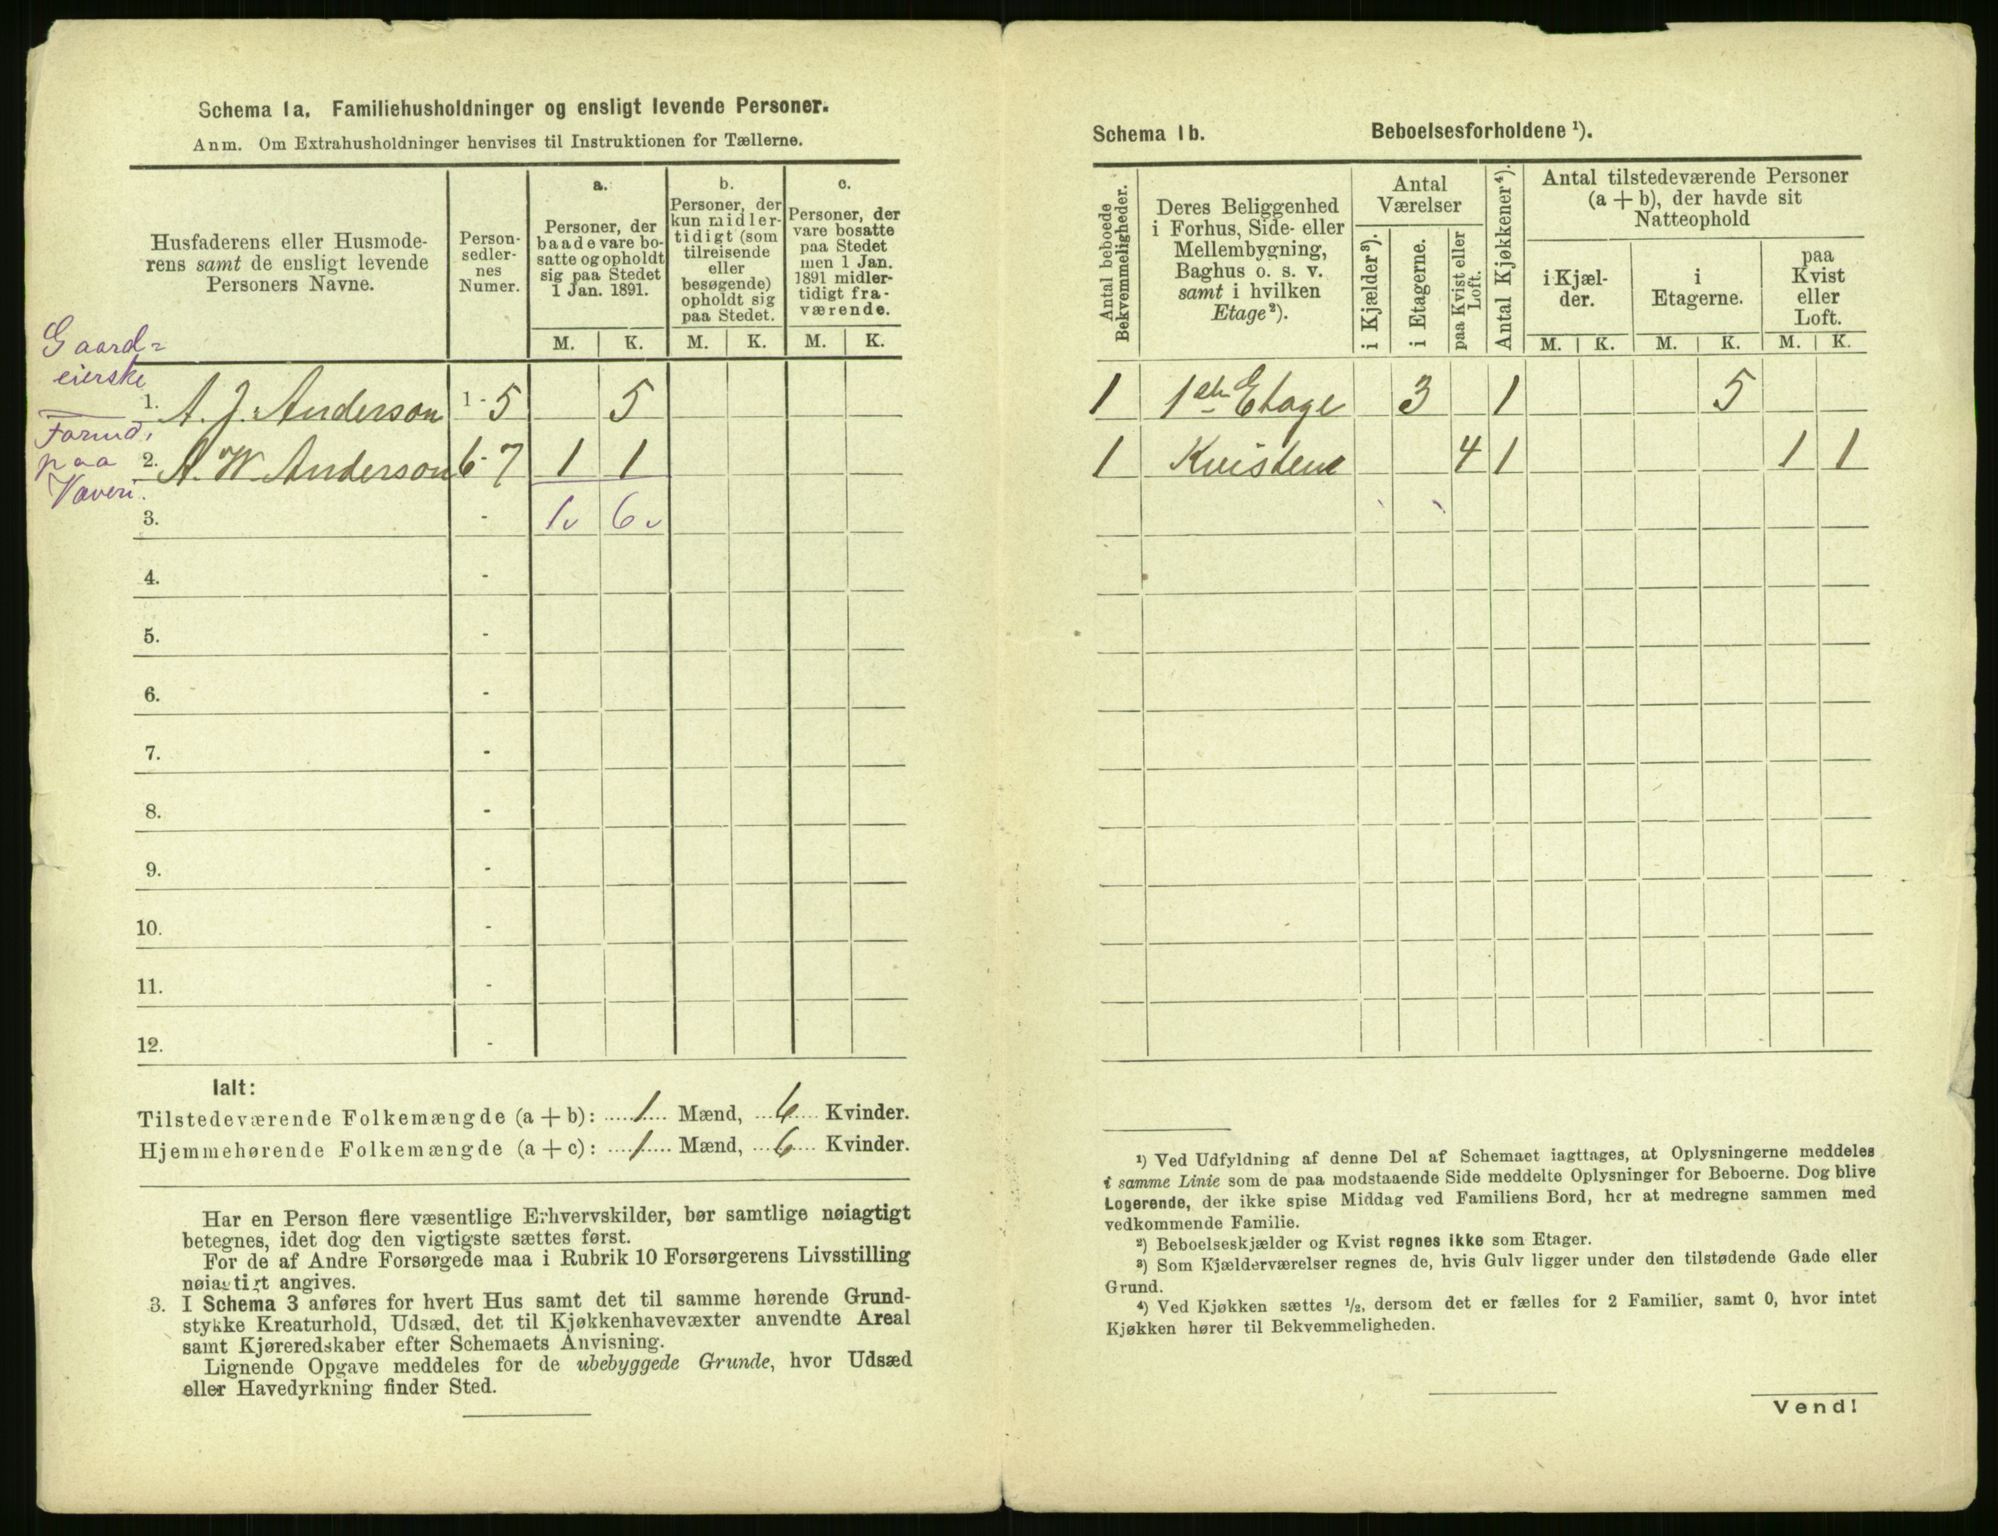 Schema 1a. Familiehusholdninger og ensligt levende Personer.
Anm. Om Extrahusholdninger henvises til Instruktionen for Tællerne.
Husfaderens eller Husmode-
rens samt de ensligt levende
Personers Navne.
Person-
sedler-
nes
Numer.
a.
Personer, der
baade vare bo-
satte og opholdt
sig paa Stedet
1 Jan. 1891.
b.
Personer, der
kun midler-
tidigt (som
tilreisende
eller
besøgende)
opholdt sig
paa Stedet.
c.
Personer, der
vare bosatte
paa Stedet
men 1 Jan.
1891 midler-
tidigt fra-
værende.
M. K. M. K. M. K.
Gaard=
eierske
1. A. J. Anderson 1 - 5 5
Formd.
paa
2. A. W. Anderson 6 - 7 1 1
Væveri.
3. - 1 6
4. -
5. -
6. -
7. -
8. -
9. -
10. -
11. -
12. -
Ialt:
Tilstedeværende Folkemængde (a + b): 1 Mænd, 6 Kvinder.
Hjemmehørende Folkemængde (a + c): 1 Mænd, 6 Kvinder.
Har en Person flere væsentlige Erhvervskilder, bør samtlige nøiagtigt
betegnes, idet dog den vigtigste sættes først.
For de af Andre Forsørgede maa i Rubrik 10 Forsørgerens Livsstilling
nøiagtigt angives.
3. I Schema 3 anføres for hvert Hus samt det til samme hørende Grund-
stykke Kreaturhold, Udsæd, det til Kjøkkenhavevæxter anvendte Areal
samt Kjøreredskaber efter Schemaets Anvisning.
Lignende Opgave meddeles for de ubebyggede Grunde, hvor Udsæd
eller Havedyrkning finder Sted.
Schema 1b. Beboelsesforholdene ¹).
Antal beboede
Bekvemmeligheder.
Deres Beliggenhed
i Forhus, Side- eller
Mellembygning,
Baghus o. s. v.
samt i hvilken
Etage²).
Antal
Værelser
i Kjælder³).
i Etagerne.
paa Kvist eller
Loft.
Antal Kjøkkener⁴).
Antal tilstedeværende Personer
(a + b), der havde sit
Natteophold
i Kjæl-
der.
i
Etagerne.
paa
Kvist
eller
Loft.
M. K. M. K. M. K.
1 1ste Etage 3 1 5
1 Kvisten 4 1 1 1
¹) Ved Udfyldning af denne Del af Schemaet iagttages, at Oplysningerne meddeles
i samme Linie som de paa modstaaende Side meddelte Oplysninger for Beboerne. Dog blive
Logerende, der ikke spise Middag ved Familiens Bord, her at medregne sammen med
vedkommende Familie.
²) Beboelseskjælder og Kvist regnes ikke som Etager.
³) Som Kjælderværelser regnes de, hvis Gulv ligger under den tilstødende Gade eller
Grund.
⁴) Ved Kjøkken sættes ½, dersom det er fælles for 2 Familier, samt 0, hvor intet
Kjøkken hører til Bekvemmeligheden.
Vend!